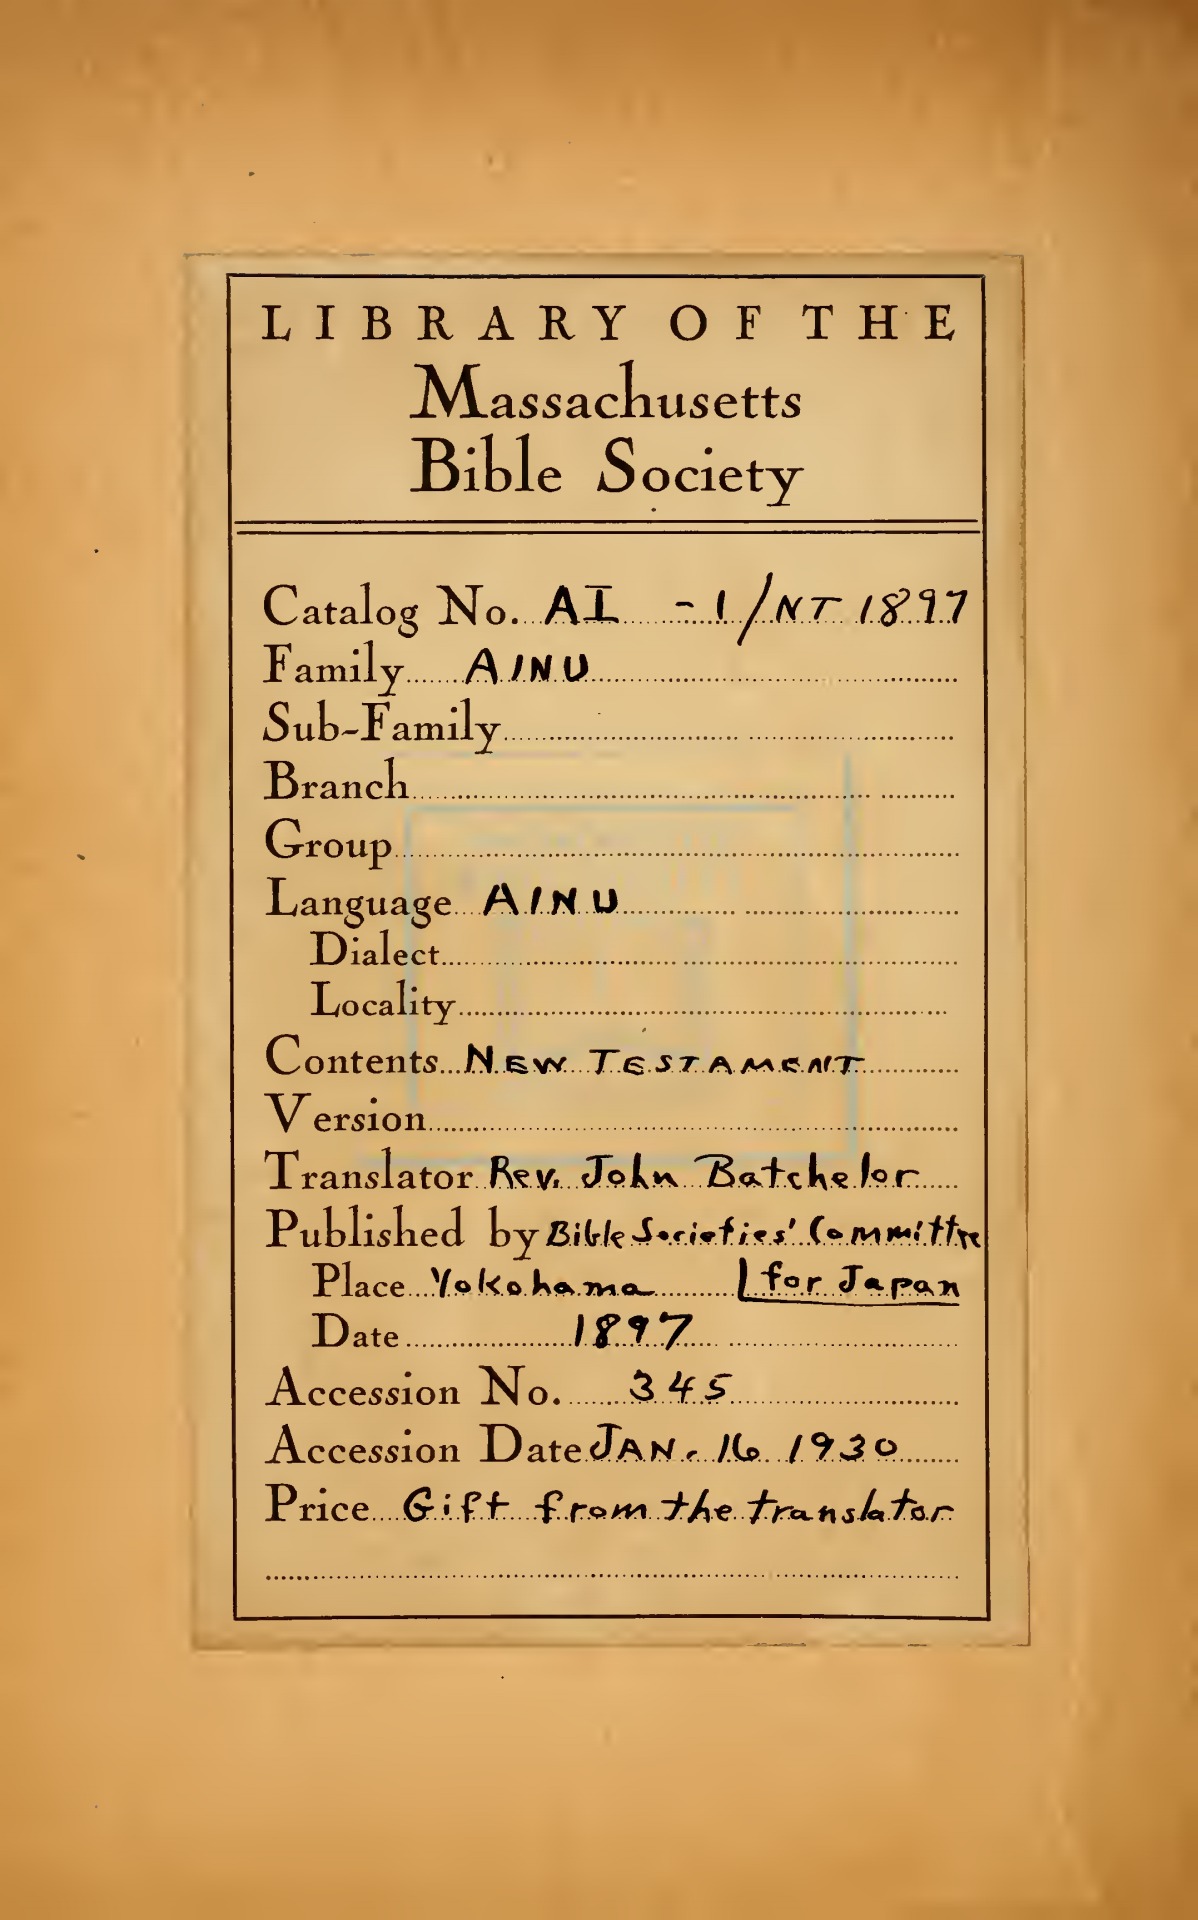 LIBRARY OF THE
Massachusetts
Bible Society
Catalog No. AI - 1/NT 1897
Family AINU
Sub-Family
Branch
Group
Language AINU
Dialect
Locality
Contents NEW TESTAMENT
Version
Translator Rev. John Batchelor
Published by Bible Societies' Committee
Place Yokohama for Japan
Date 1897
Accession No. 345
Accession Date JAN. 16 1930
Price Gift from the translator